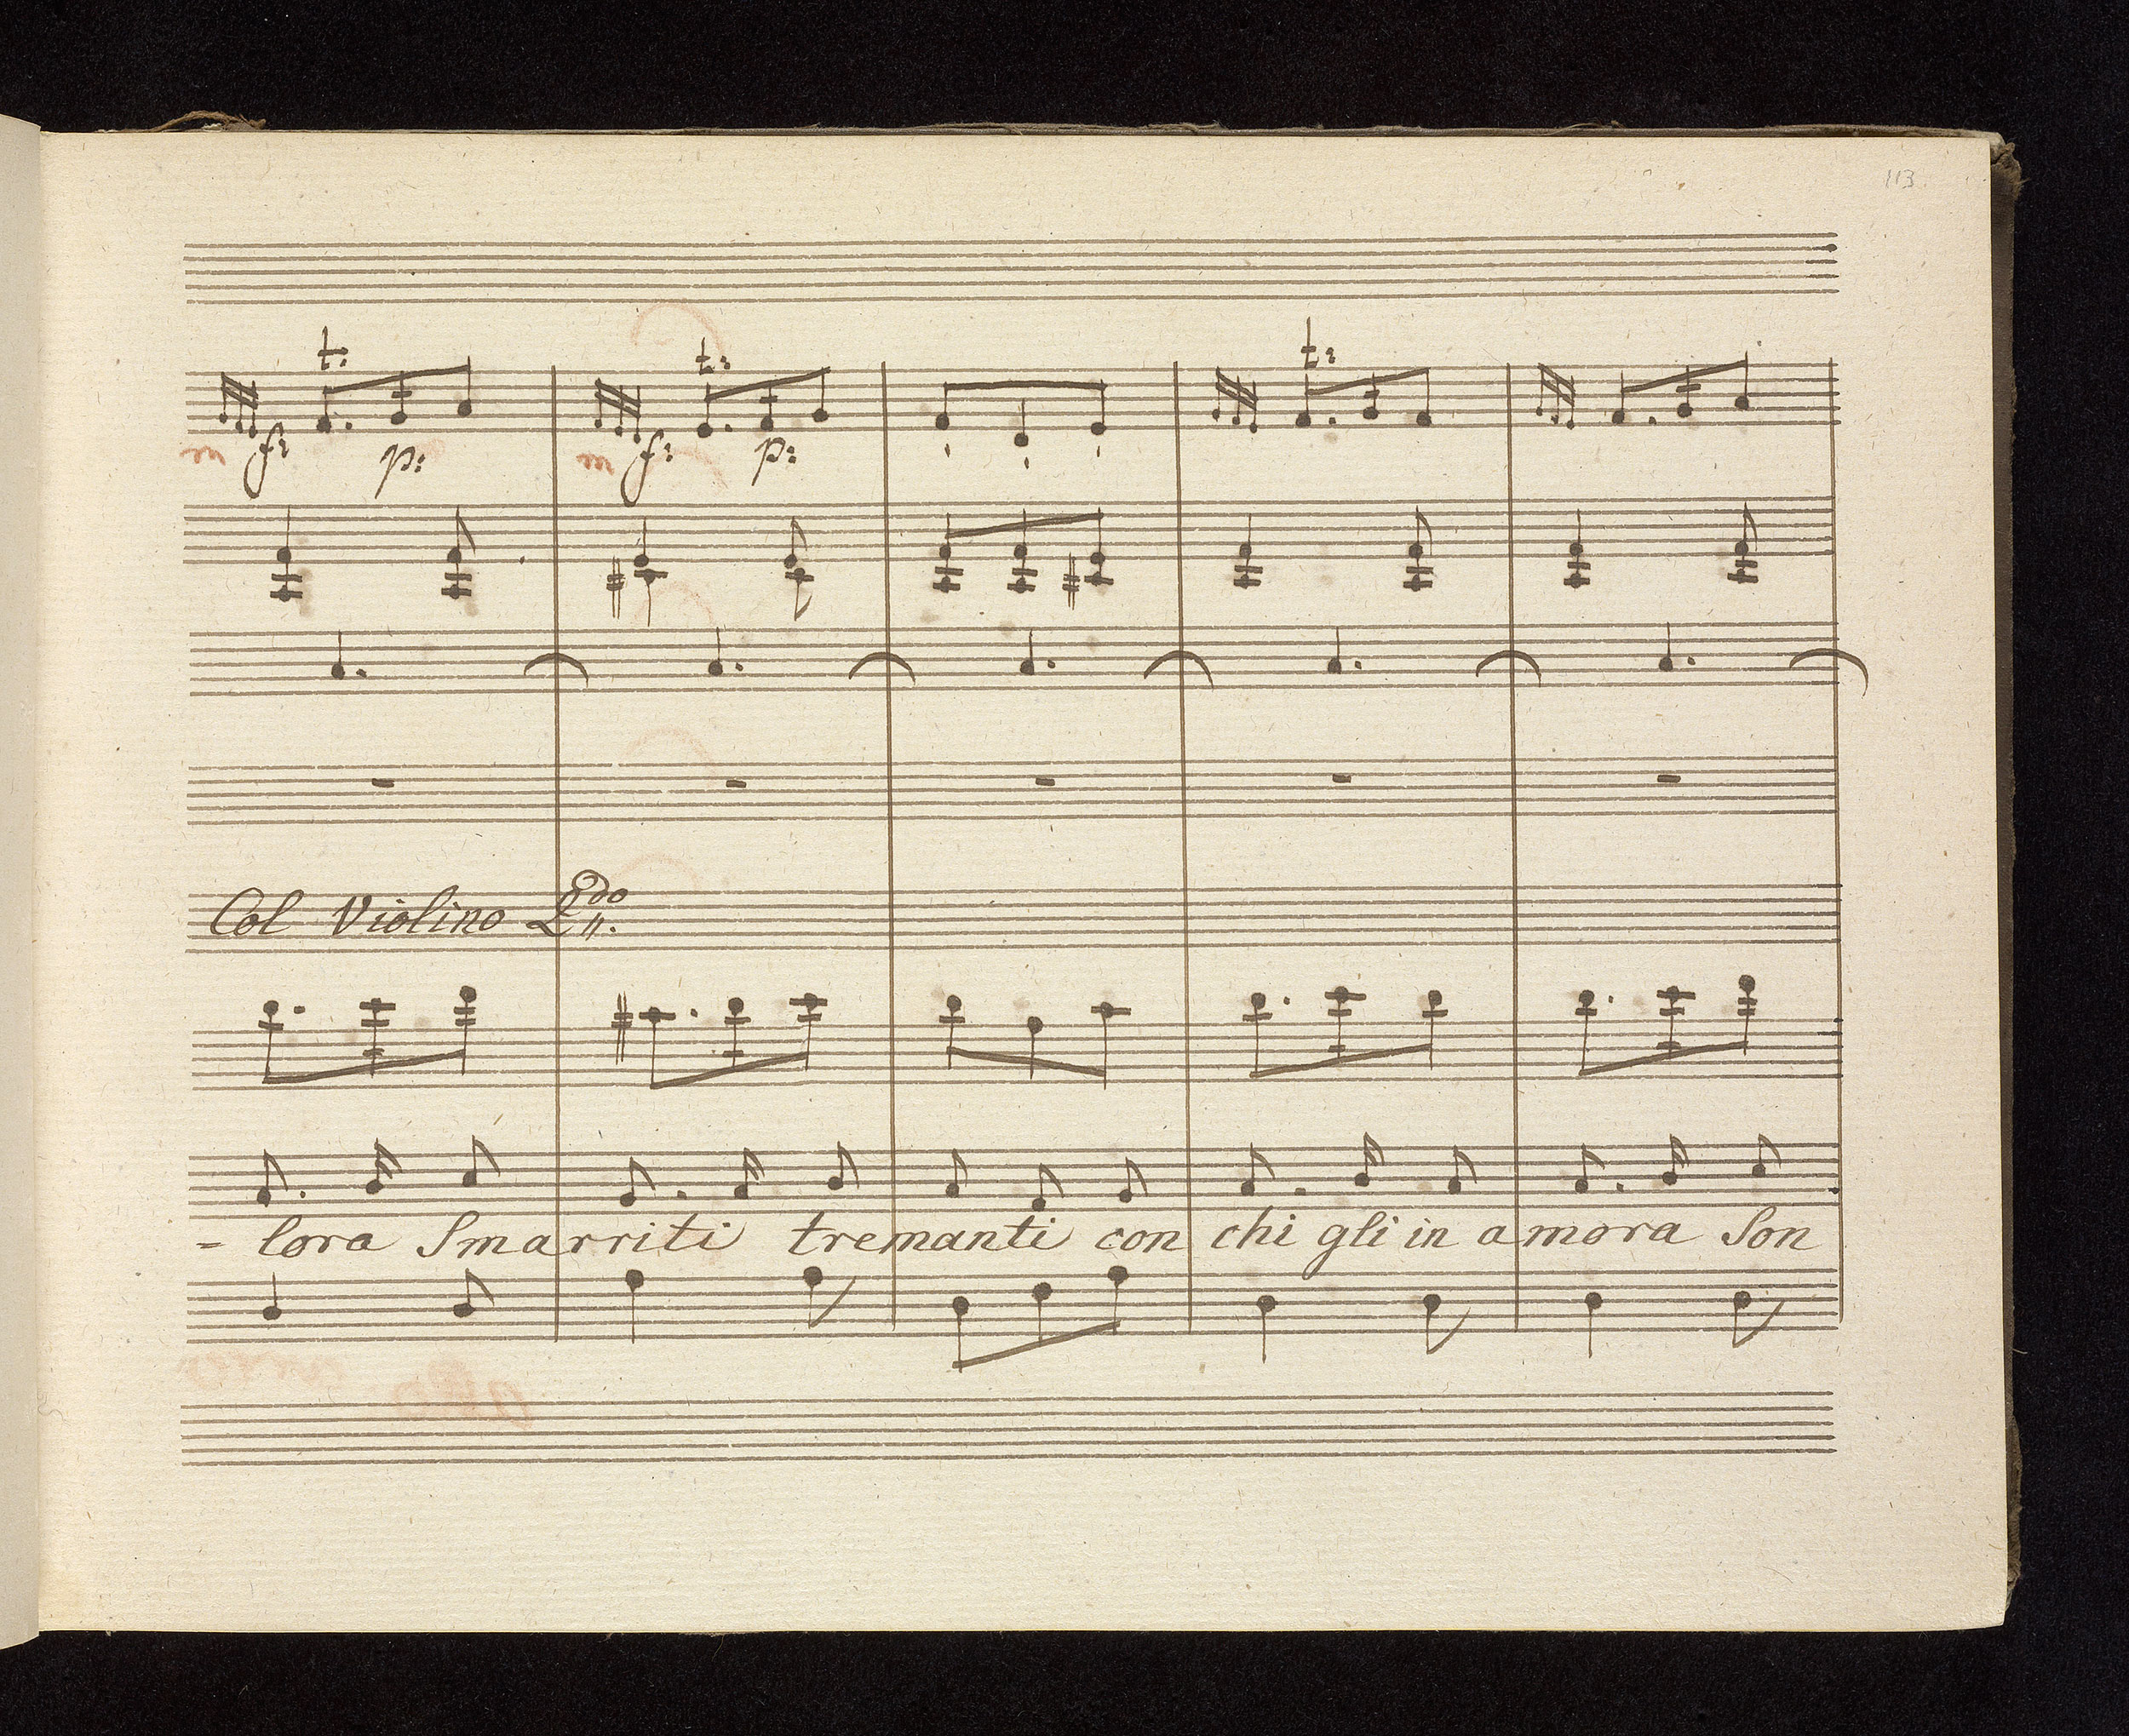 113
t. t. t.
f: p: f: p:
Col Violino 2do
- lora Smarriti tremanti con chi gli in amora Son